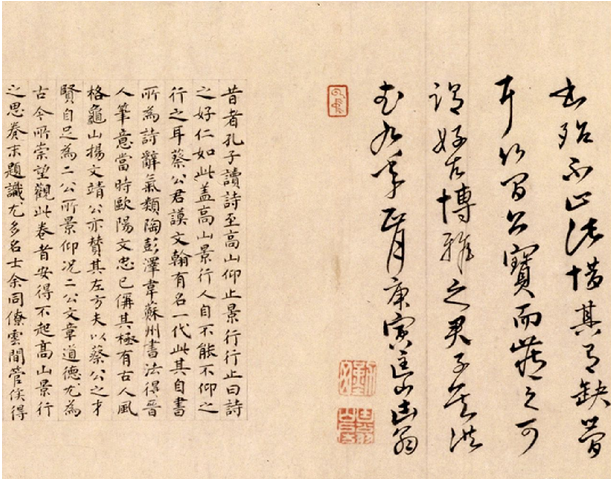 殆不止法惜其有缺
耳公寶而藏之可
謂好古博雅之君子矣洪
武九年正月庚寅匡山翁
昔者孔子讀詩至高山仰止景行行止曰詩
之好仁如此盖高山景行人自不能不仰之
行之耳蔡公君謨文翰有名一代此其自書
所為詩辭氣類陶彭澤韋蘇州書法得晉
人筆意當時歐陽文忠已偁其極有古人風
格龜山楊文靖公亦賛其左方夫以蔡公之才
賢自足為二公所景仰況二公文章道德尤為
古今所崇望觀此卷者安得不起高山景行
之思卷末題識尤多名士余同僚雲間管侯得